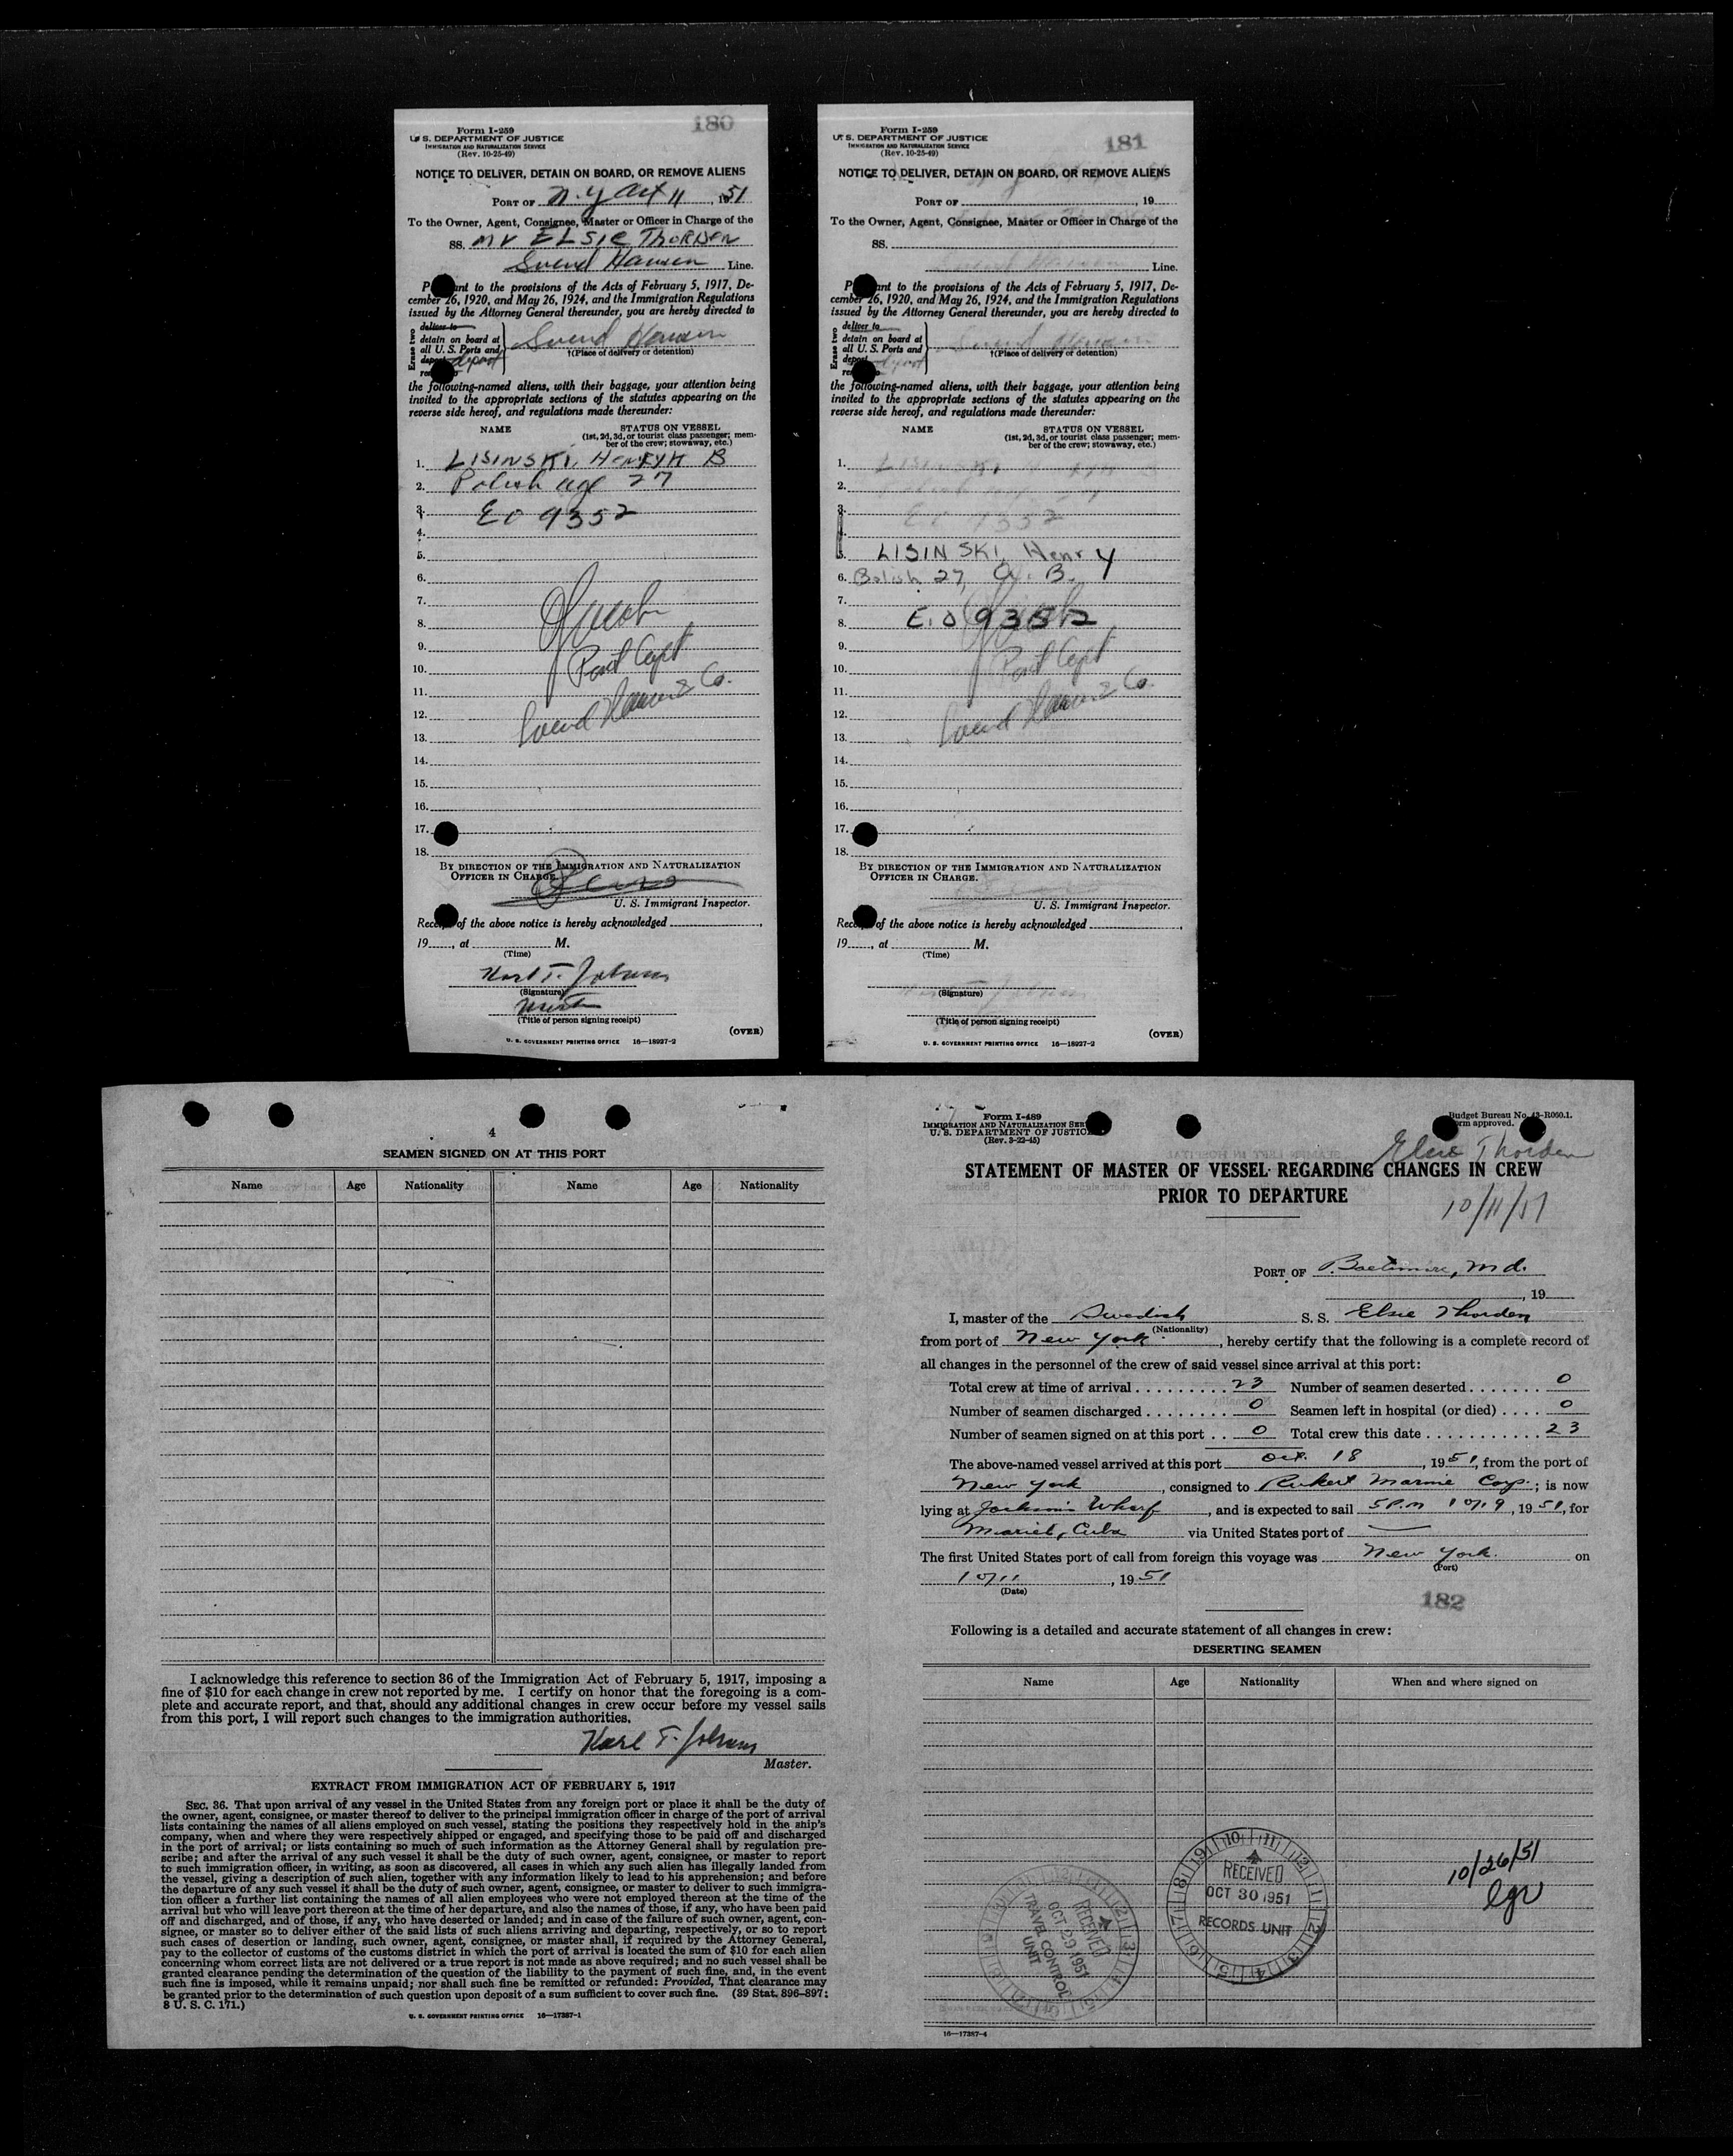 180
Form I-259
U. S. DEPARTMENT OF JUSTICE
IMMIGRATION AND NATURALIZATION SERVICE
(Rev. 10-25-49)
NOTICE TO DELIVER, DETAIN ON BOARD, OR REMOVE ALIENS
PORT OF N.Y Oct 11, 1951
To the Owner, Agent, Consignee, Master or Officer in Charge of the
SS. MV ELSIE THORDEN
Svend Hansen Line.
P ant to the provisions of the Acts of February 5, 1917, De-
cember 26, 1920, and May 26, 1924, and the Immigration Regulations
issued by the Attorney General thereunder, you are hereby directed to
Erase two
deliver to
detain on board at
all U. S. Ports and
deport
Svend Hansen
†(Place of delivery or detention)
the following-named aliens, with their baggage, your attention being
invited to the appropriate sections of the statutes appearing on the
reverse side hereof, and regulations made thereunder:
NAME STATUS ON VESSEL
(1st, 2d, 3d, or tourist class passenger; mem-
ber of the crew; stowaway, etc.)
1. LISINSKI, HENRYK B
2. Polish age 27
3. EO 9352
4.
5.
6.
7.
8.
9.
10. Port Capt
11.
12. Svend Hansen & Co.
13.
14.
15.
16.
17.
18.
BY DIRECTION OF THE IMMIGRATION AND NATURALIZATION
OFFICER IN CHARGE.
U. S. Immigrant Inspector.
Rece of the above notice is hereby acknowledged ,
19 , at M.
(Time)
Karl T.
(Signature)
(Title of person signing receipt)
(OVER)
U. S. GOVERNMENT PRINTING OFFICE 16—18927-2
181
Form I-259
U. S. DEPARTMENT OF JUSTICE
IMMIGRATION AND NATURALIZATION SERVICE
(Rev. 10-25-49)
NOTICE TO DELIVER, DETAIN ON BOARD, OR REMOVE ALIENS
PORT OF , 19
To the Owner, Agent, Consignee, Master or Officer in Charge of the
SS.
Line.
P ant to the provisions of the Acts of February 5, 1917, De-
cember 26, 1920, and May 26, 1924, and the Immigration Regulations
issued by the Attorney General thereunder, you are hereby directed to
Erase two
deliver to
detain on board at
all U. S. Ports and
deport
Svend Hansen
†(Place of delivery or detention)
the following-named aliens, with their baggage, your attention being
invited to the appropriate sections of the statutes appearing on the
reverse side hereof, and regulations made thereunder:
NAME STATUS ON VESSEL
(1st, 2d, 3d, or tourist class passenger; mem-
ber of the crew; stowaway, etc.)
1. LISINSKI,
2.
3. EO 9352
4.
5. LISINSKI, Henry
6. Polish 27, B.
7.
8. E.O 9352
9.
10. Port Capt
11.
12. Svend Hansen & Co.
13.
14.
15.
16.
17.
18.
BY DIRECTION OF THE IMMIGRATION AND NATURALIZATION
OFFICER IN CHARGE.
U. S. Immigrant Inspector.
Rece of the above notice is hereby acknowledged ,
19 , at M.
(Time)
(Signature)
(Title of person signing receipt)
(OVER)
U. S. GOVERNMENT PRINTING OFFICE 16—18927-2
4
SEAMEN SIGNED ON AT THIS PORT
Name Age Nationality Name Age Nationality
I acknowledge this reference to section 36 of the Immigration Act of February 5, 1917, imposing a
fine of $10 for each change in crew not reported by me. I certify on honor that the foregoing is a com-
plete and accurate report, and that, should any additional changes in crew occur before my vessel sails
from this port, I will report such changes to the immigration authorities.
Karl T.
Master.
EXTRACT FROM IMMIGRATION ACT OF FEBRUARY 5, 1917
SEC. 36. That upon arrival of any vessel in the United States from any foreign port or place it shall be the duty of
the owner, agent, consignee, or master thereof to deliver to the principal immigration officer in charge of the port of arrival
lists containing the names of all aliens employed on such vessel, stating the positions they respectively hold in the ship's
company, when and where they were respectively shipped or engaged, and specifying those to be paid off and discharged
in the port of arrival; or lists containing so much of such information as the Attorney General shall by regulation pre-
scribe; and after the arrival of any such vessel it shall be the duty of such owner, agent, consignee, or master to report
to such immigration officer, in writing, as soon as discovered, all cases in which any such alien has illegally landed from
the vessel, giving a description of such alien, together with any information likely to lead to his apprehension; and before
the departure of any such vessel it shall be the duty of such owner, agent, consignee, or master to deliver to such immigra-
tion officer a further list containing the names of all alien employees who were not employed thereon at the time of the
arrival but who will leave port thereon at the time of her departure, and also the names of those, if any, who have been paid
off and discharged, and of those, if any, who have deserted or landed; and in case of the failure of such owner, agent, con-
signee, or master so to deliver either of the said lists of such aliens arriving and departing, respectively, or so to report
such cases of desertion or landing, such owner, agent, consignee, or master shall, if required by the Attorney General,
pay to the collector of customs of the customs district in which the port of arrival is located the sum of $10 for each alien
concerning whom correct lists are not delivered or a true report is not made as above required; and no such vessel shall be
granted clearance pending the determination of the question of the liability to the payment of such fine, and, in the event
such fine is imposed, while it remains unpaid; nor shall such fine be remitted or refunded: Provided, That clearance may
be granted prior to the determination of such question upon deposit of a sum sufficient to cover such fine. (39 Stat. 896-897;
8 U. S. C. 171.)
U. S. GOVERNMENT PRINTING OFFICE 16—17387-1
Form I-489
IMMIGRATION AND NATURALIZATION SER
U. S. DEPARTMENT OF JUSTIC
(Rev. 3-22-45)
Budget Bureau No. 43-R060.1.
orm approved.
Elsie Thorden
STATEMENT OF MASTER OF VESSEL REGARDING CHANGES IN CREW
PRIOR TO DEPARTURE
10/11/51
PORT OF Baltimore, Md.
, 19
I, master of the Swedish S. S. Elsie Thorden
(Nationality)
from port of New York, hereby certify that the following is a complete record of
all changes in the personnel of the crew of said vessel since arrival at this port:
Total crew at time of arrival 23 Number of seamen deserted 0
Number of seamen discharged 0 Seamen left in hospital (or died) 0
Number of seamen signed on at this port 0 Total crew this date 23
The above-named vessel arrived at this port Oct. 18, 1951, from the port of
New York, consigned to Rukert Marine Corp.; is now
lying at Jackson's Wharf, and is expected to sail 5 P.M 10/19, 1951, for
Mariel, Cuba via United States port of —
The first United States port of call from foreign this voyage was New York. on
(Port)
10/11, 1951
(Date)
182
Following is a detailed and accurate statement of all changes in crew:
DESERTING SEAMEN
Name Age Nationality When and where signed on
RECEIVED
OCT 29 1951
TRAVEL CONTROL
UNIT
RECEIVED
OCT 30 1951
RECORDS UNIT
10/26/51
lgv
16—17387-4